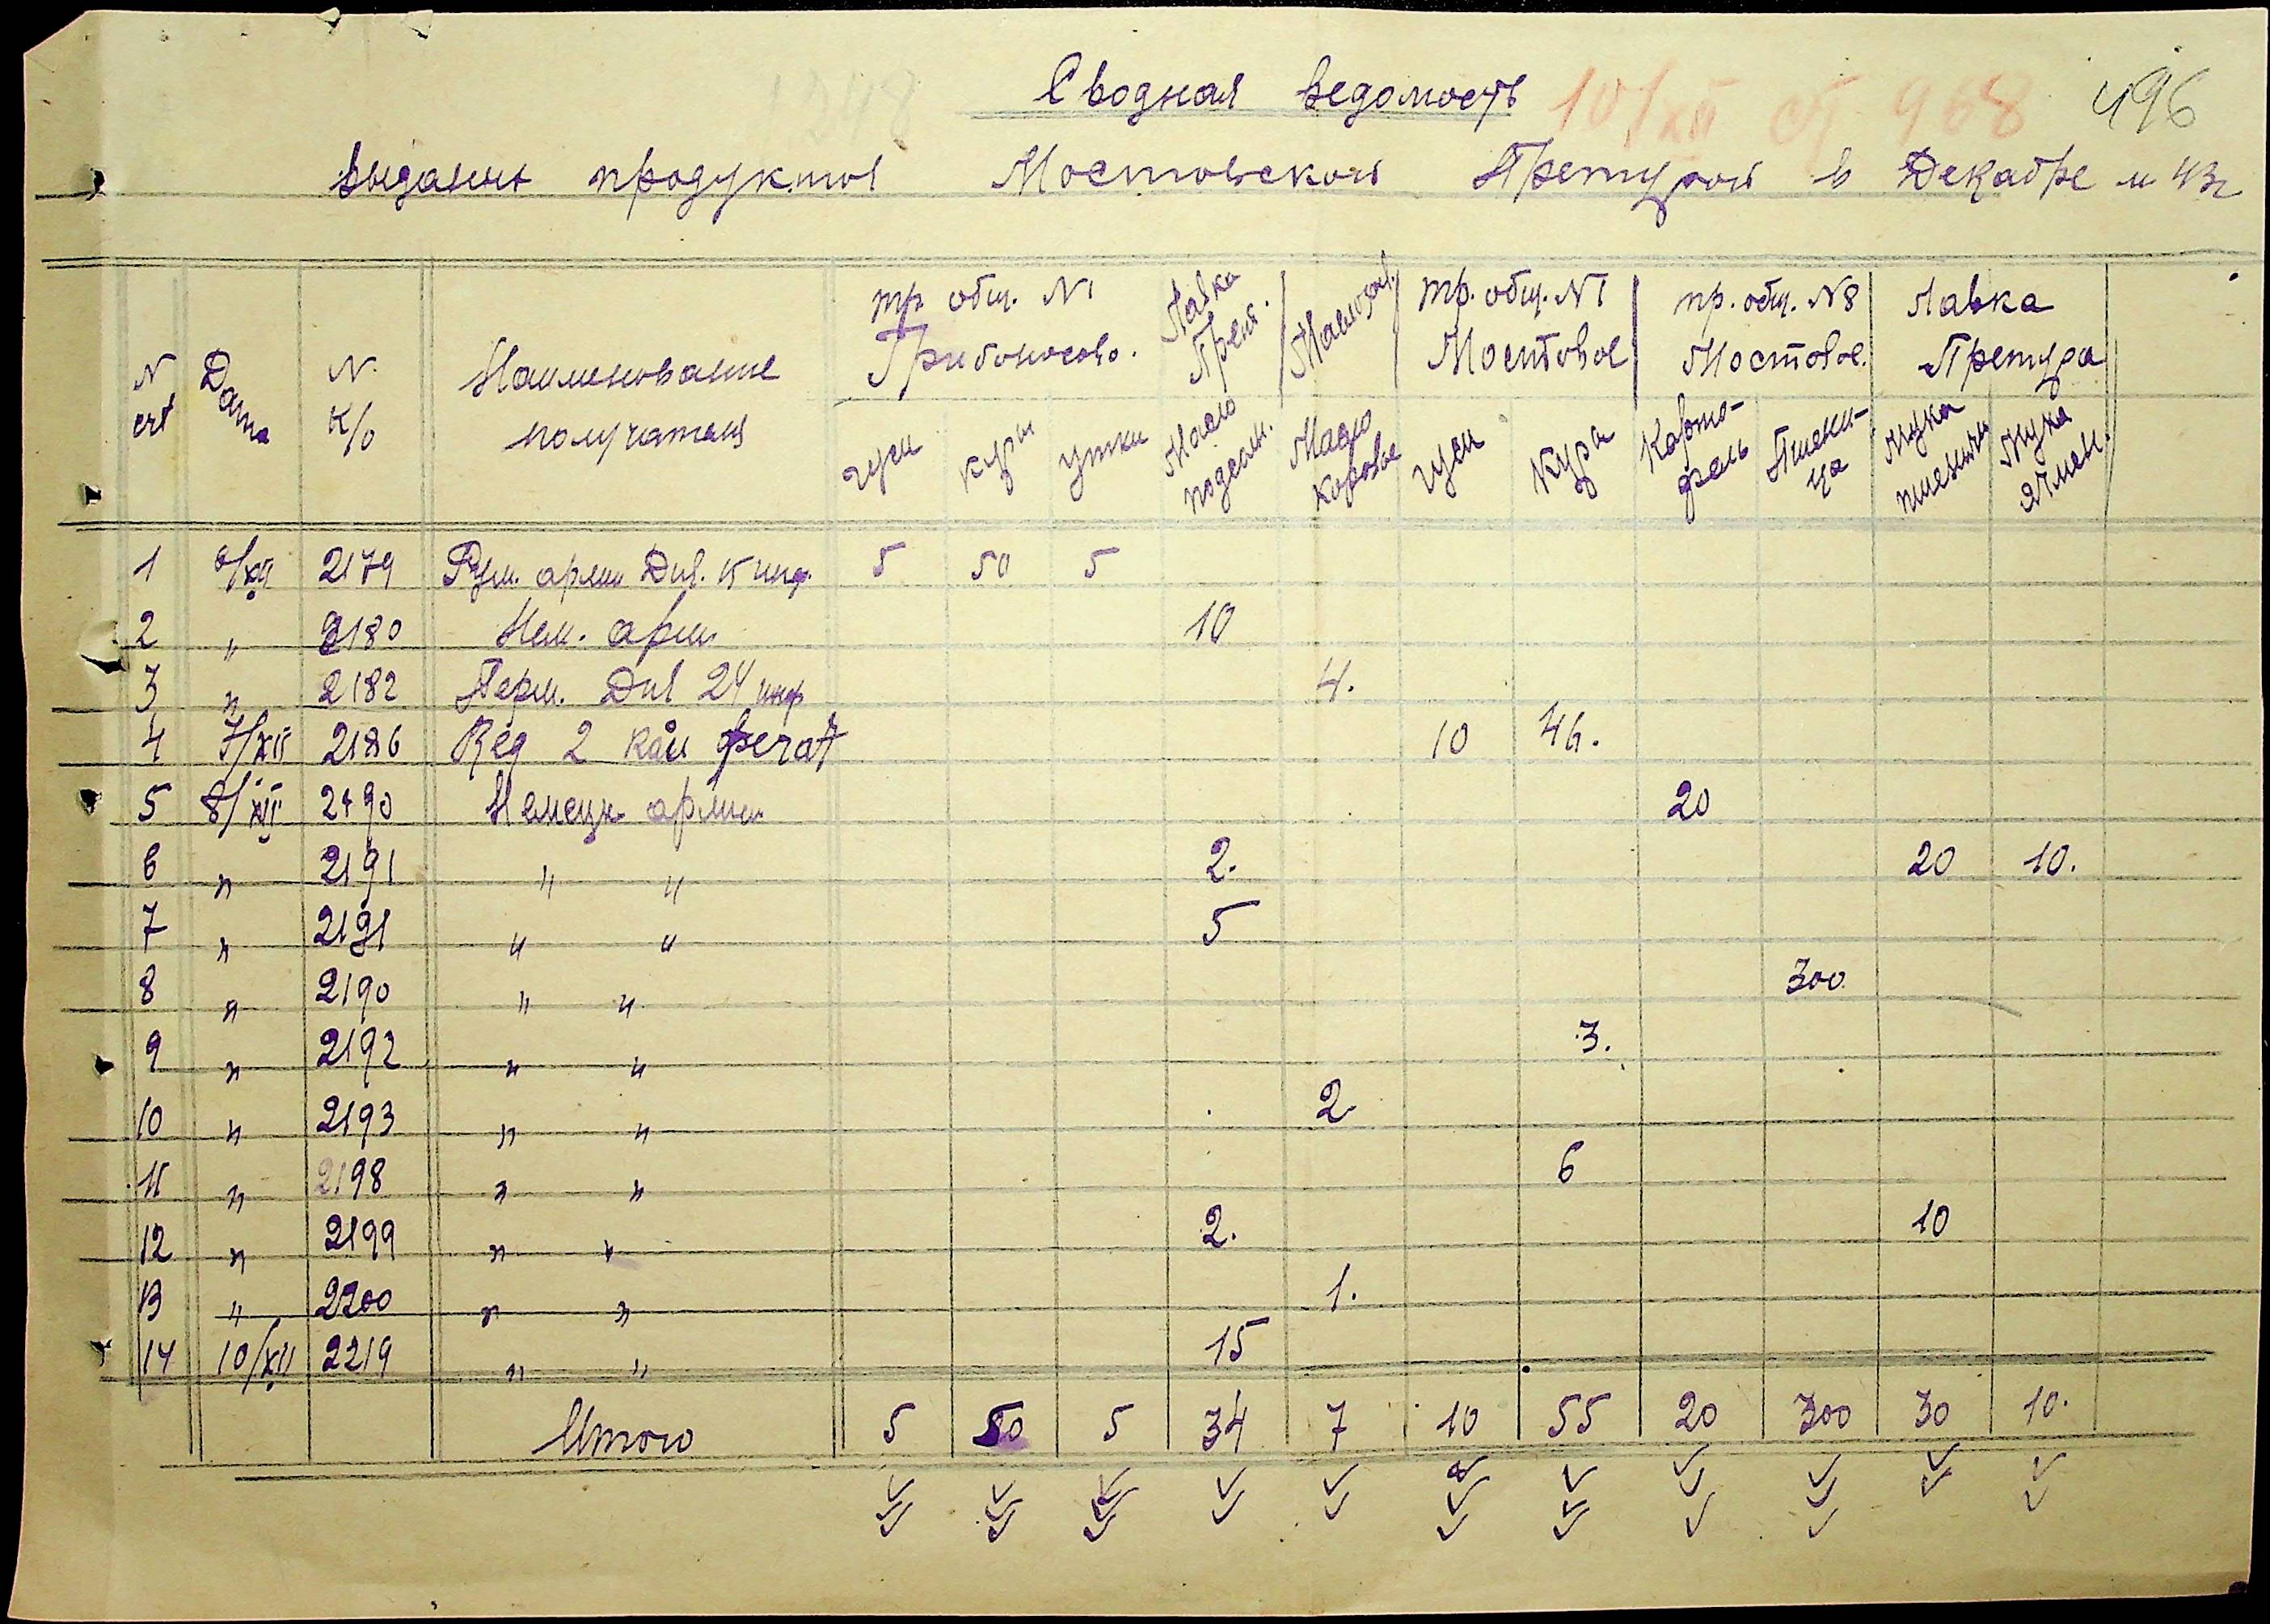 Сводная ведомость 10/XII 968 496
выданых продуктов Мостовской Претурой в Декабре м 43г
N счт Дата N. к/о Наименование получателя
тр. общ. N1 Грибоносово.
Лавка Прет.
тр. общ. N1 Мостовое
тр. общ. N8 Мостовое.
Лавка Претура
гуси куры утки Масло подсолн. Масло коровье гуси Куры Карто-фель Пшени-ца Мука пшеничн Мука ячмен.
1 6/XII 2179 Рум. арми Div. 15 инф. 5 50 5
2 " 2180 Нем. арм 10
3 " 2182 Герм. Div 24 инф 4.
4 7/XII 2186 Reg 2 46. 10
5 8/XII 2190 Немецк армии 20
6 " 2191 " " 2. 20 10.
7 " 2191 " " 5
8 " 2190 " " 300
9 " 2192 " " 3.
10 " 2193 " " 2
11 " 2198 " " 6
12 " 2199 " " 2. 10
13 " 2200 " " 1.
14 10/XII 2219 " " 15
Итого 5 50 5 34 7 10 55 20 300 30 10.